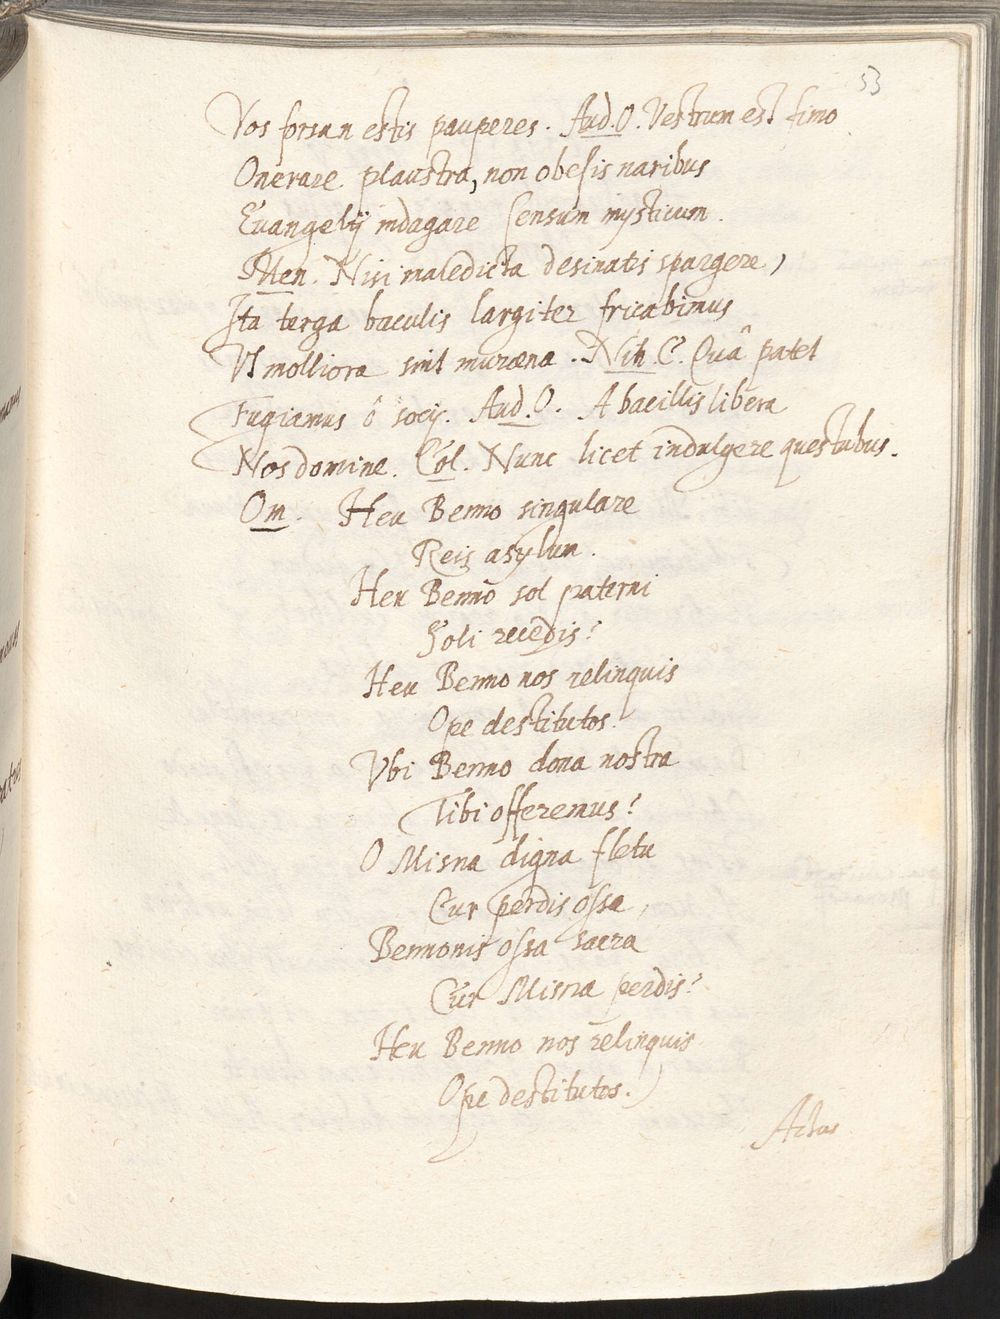 53
Vos forsan estis pauperes. Aud. O. Vestrum est fimo
Onerare plaustra, non obesis naribus
Euangelij indagare sensum mysticum.
Men. Nisi maledicta desinatis spargere,
Ita terga baculis largiter fricabimus
Vt molliora sint muræna. Nih. C. Quâ patet
Fugiamus ô socij. Aud. O. A bacillis libera
Nos domine. Col. Nunc licet indulgere questubus.
Om. Heu Benno singulare
Reis asylum.
Heu Benno sol paterni
Soli recedis?
Heu Benno nos relinquis
Ope destitutos.
Vbi Benno dona nostra
Tibi offeremus?
O Misna digna fletu
Cur perdis ossa,
Bennonis ossa sacra
Cur Misna perdis?
Heu Benno nos relinquis
Ope destitutos.
Actus